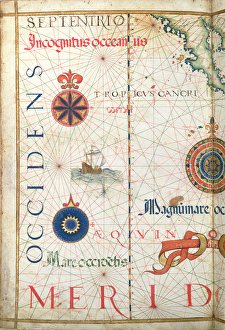 SEPTENTRIO
Incognitus occeanus
TROPICVS CANCRI
OCCIDENS
Magnum mare oc
ÆQVINO
Mare occidētis
MERID